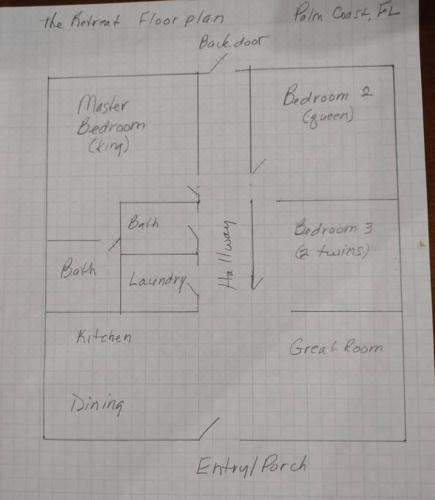 the Retreat Floorplan
Palm Coast, FL
Backdoor
Master
Bedroom
(king)
Bedroom 2
(queen)
Bath
Hallway
Bedroom 3
(2 twins)
Bath
Laundry
Kitchen
Great Room
Dining
Entry/Porch